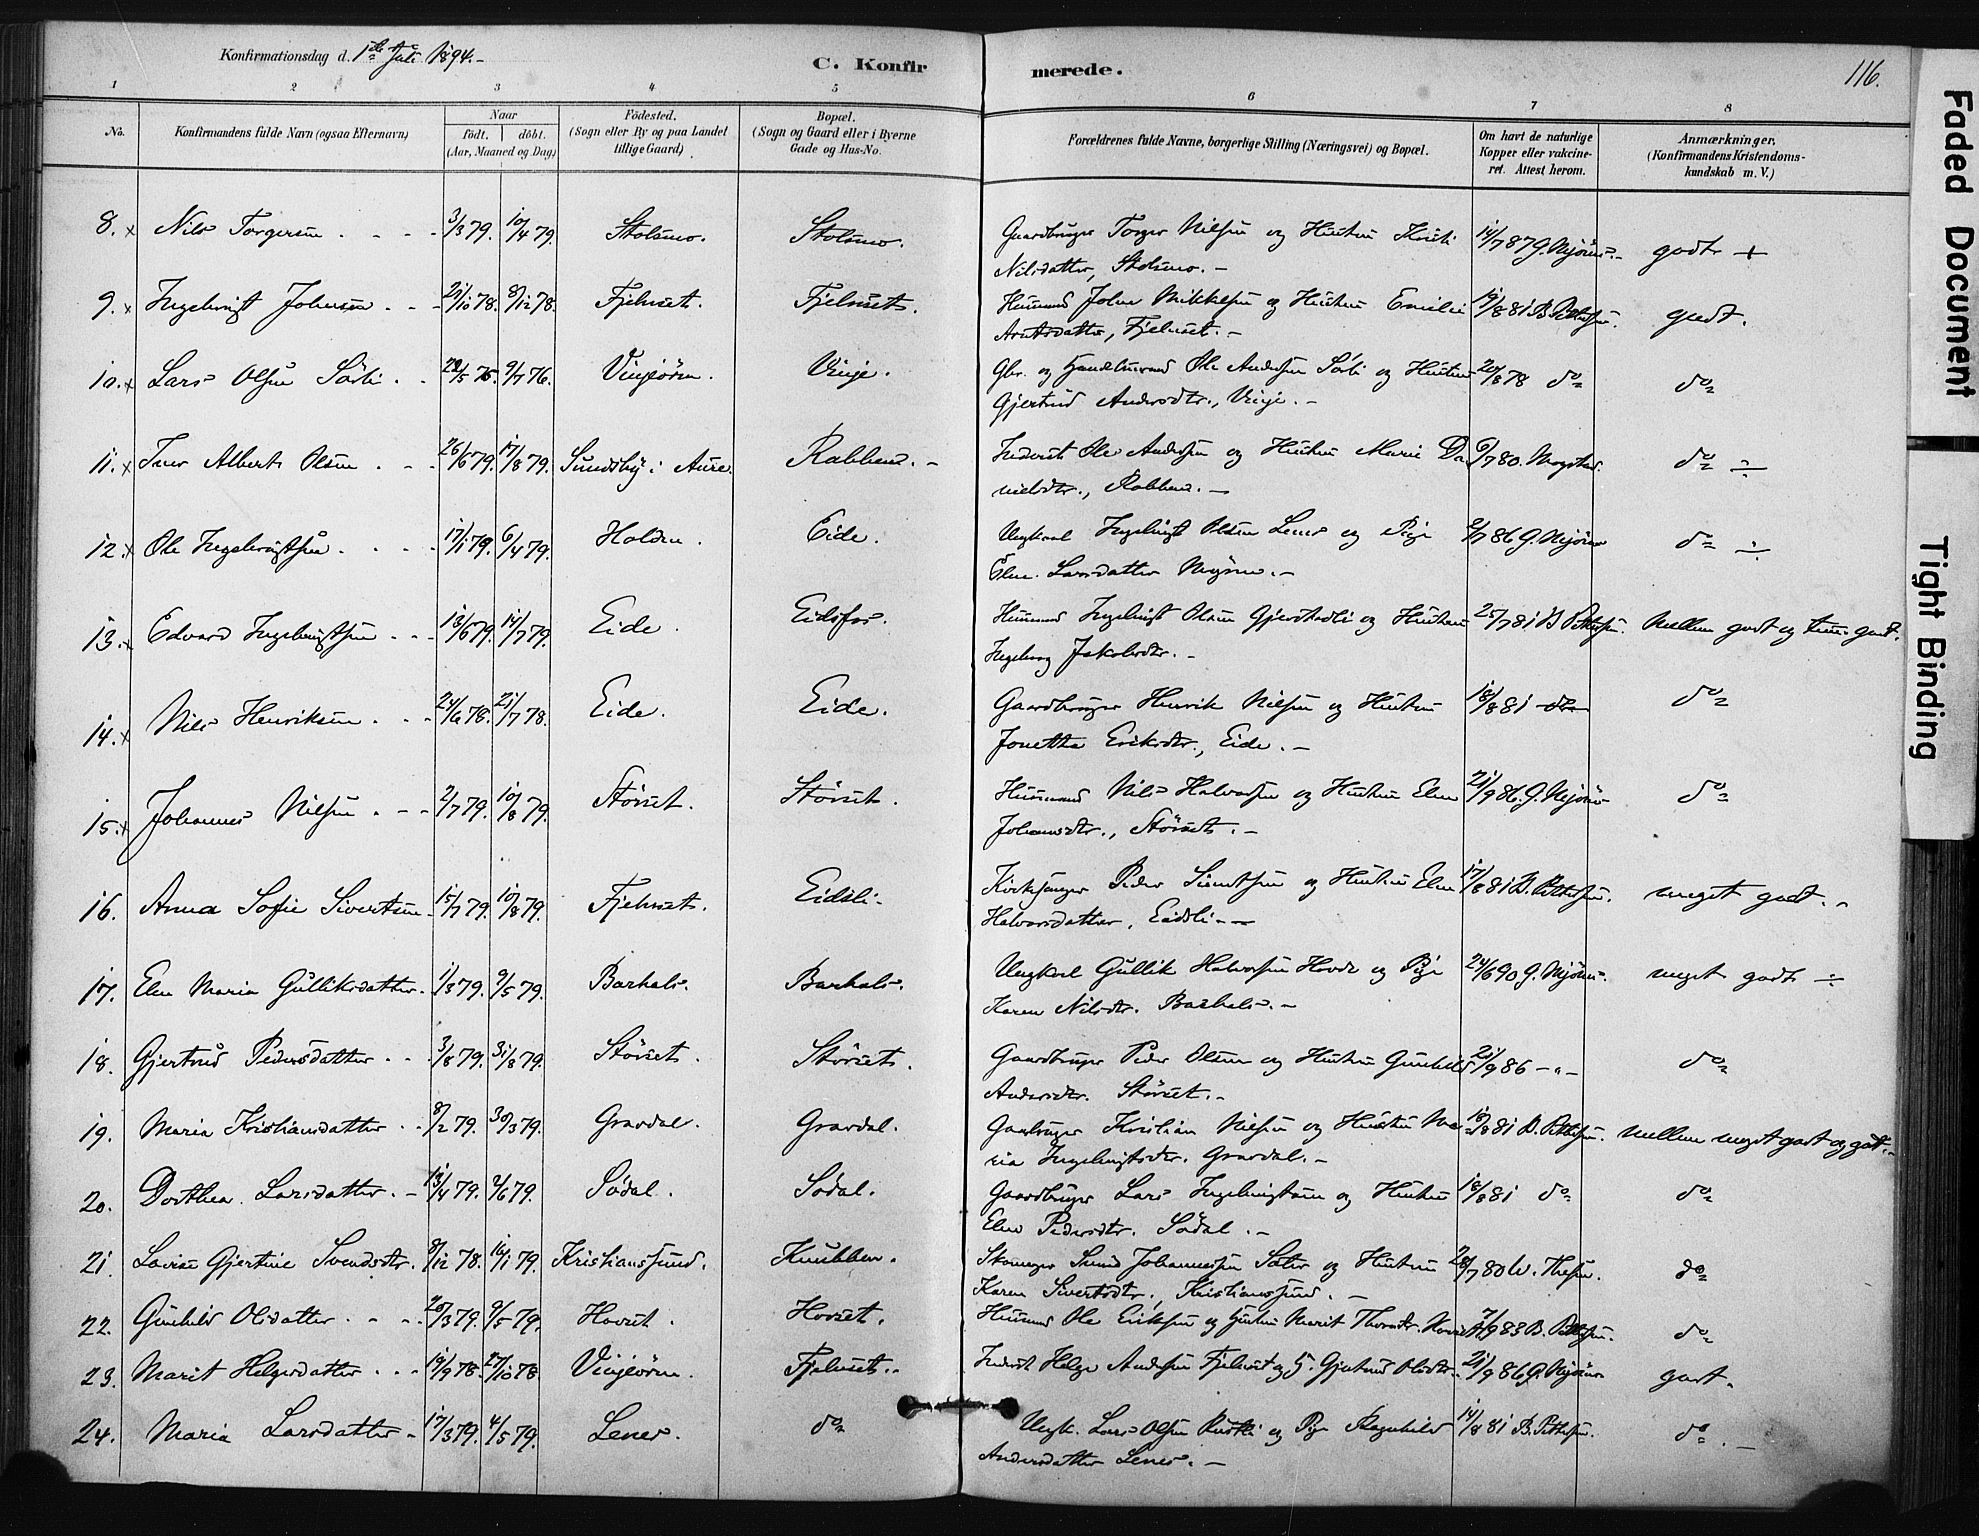 Konfirmationsdag d. 1ste Juli 1894.-
C. Konfirmerede.
116.
1 2 3 4 5 6 7 8
No. Konfirmandens fulde Navn (ogsaa Efternavn) Naar født. døbt. (Aar, Maaned og Dag) Fødested. (Sogn eller By og paa Landet tillige Gaard) Bopæl. (Sogn og Gaard eller i Byerne Gade og Hus-No. Forældrenes fulde Navne, borgerlige Stilling (Næringsvei) og Bopæl. Om havt de naturlige Kopper eller vakcineret. Attest herom. Anmærkninger. (Konfirmandens Kristendomskundskab m. V.)
8. x Nils Torgersen . - - - 3/3 79. 10/4 79. Stolsmo. Stolsmo. Gaardbruger Torger Nilsen og Hustru Kirsti 14/7 87 G. Mjönes.- godt +
Nilsdatter, Stolsmo. -
9. x Ingebrigt Johnsen . - - 21/10 78. 8/12 78. Fjelnset. Fjelnset. Husmand John Mikkelsen og Hustru Emilie 19/8 81 B. Pettersen. godt.
Arntsdatter, Fjelnset. -
10. x Lars Olsen Sörli . - 28/5 75. 9/7 76. Vinjeören. Vinje. Gbr. og Handelsmand Ole Andersen Sörli og Hustru 20/8 78 do do
Gjertrud Andersdtr., Vinje. -
11. x Iver Alberts Olsen . - - 26/6 79. 17/8 79. Sundsby i Aure. Rabben. - Inderst Ole Andersen og Hustru Marie Da- 6/7 80. Mogstad. do ÷
nielsdtr., Rabben. -
12. x Ole Ingebrigtsen . - - - 17/1 79. 6/4 79. Holden. Eide. Ungkarl Ingebrigt Olsen Lenes og Pige 2/7 86 G. Mjönes do ÷
Elen Larsdatter Mjönes. -
13. x Edvard Ingebrigtsen . - - 13/6 79. 14/7 79. Eide. Eidsfos. Husmand Ingebrigt Olsen Gjerdhadli og Hustru 25/7 81 B Pettersen. Mellem godt og temmel. godt.
Ingeborg Jakobsdtr. -
14. x Nils Henriksen . - - 24/6 78. 21/7 78. Eide. Eide. Gaardbruger Henrik Nilsen og Hustru 18/8 81 do do
Jonetha Eriksdtr., Eide. -
15. x Johannes Nilsen . - - 2/7 79. 10/8 79. Störset. Störset. Husmand Nils Halvorsen og Hustru Elen 21/9 86. G. Mjönes do
Johansdtr., Störset. -
16. Anna Sofie Sivertsen - 15/7 79. 10/8 79. Fjelnset. Eidsli. Kirkesanger Peder Sivertsen og Hustru Elen 17/8 81 B. Pettersen. meget godt. -
Halvorsdatter, Eidsli. -
17. Elen Maria Gulliksdatter. 1/3 79. 9/5 79. Barhals. Barhals. Ungkarl Gullik Halvorsen Hovde og Pige 24/6 90 G. Mjönes. meget godt ÷
Karen Nilsdtr. Barhals. -
18. Gjertrud Pedersdatter . - 3/8 79. 31/8 79. Störset. Störset. Gaardbruger Peder Olsen og Hustru Gunhild 21/9 86 - " - do
Andersdtr. Störset. -
19. Maria Kristiansdatter . - 8/2 79. 30/3 79. Gravdal. Gravdal. Gaardbruger Kristian Nilsen og Hustru Ma- 18/8 81 B. Pettersen. mellem meget godt og godt. -
ria Ingebrigtsdtr. Gravdal. -
20. Dorthea Larsdatter. - 13/4 79. 2/6 79. Södal. Södal. Gaardbruger Lars Ingebrigtsen og Hustru 18/8 81 do do
Elen Pedersdtr. Södal. -
21. Lovise Gjertine Svendsdtr. 8/12 78. 16/1 79. Kristianssund. Knubben. Skomager Svend Johannessen Sæter og Hustru 28/7 80 W. Thesen. do
Karen Sivertsdtr. Kristianssund. -
22. Gunhild Olsdatter . - - 20/3 79. 9/5 79. Hovset. Hovset. Husmand Ole Eriksen og Hustru Marit Thoresdtr. Hovset 7/9 83 B. Pettersen. do
23. Marit Helgesdatter . - - 19/9 78. 27/10 78 Vinjeören. Fjelnset. Inderst Helge Andersen Fjelnset og H. Gjertrud Olsdtr. 21/9 86 G. Mjönes godt.
24. Maria Larsdatter - 17/3 79. 4/5 79. Lenes. do Ungk. Lars Olsen Rustli og Pige Ragnhild 14/8 81 B. Pettersen. do. -
Andersdatter Lenes. -
Faded Document
Tight Binding